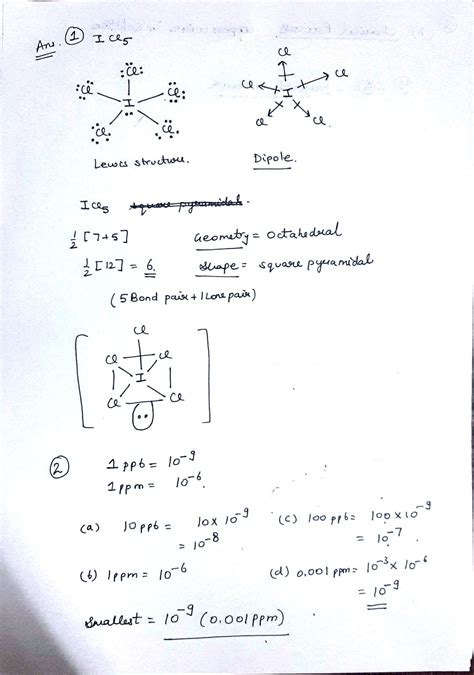 Ans. ① ICl5
:Cl:
:Cl Cl:
I
Cl. Cl.
Cl
Cl Cl
I
Cl Cl
Lewis structure. Dipole.
ICl5 square pyramidal.
1/2 [7+5] Geometry = Octahedral
1/2 [12] = 6. Shape = square pyramidal
(5 Bond pair + 1 Lone pair)
Cl
Cl Cl
I
Cl Cl
② 1 ppb = 10^-9
1 ppm = 10^-6.
(a) 10 ppb = 10 x 10^-9 (c) 100 ppb = 100 x 10^-9
= 10^-8 = 10^-7
(b) 1 ppm = 10^-6 (d) 0.001 ppm = 10^-3 x 10^-6
= 10^-9
Smallest = 10^-9 (0.001 ppm)